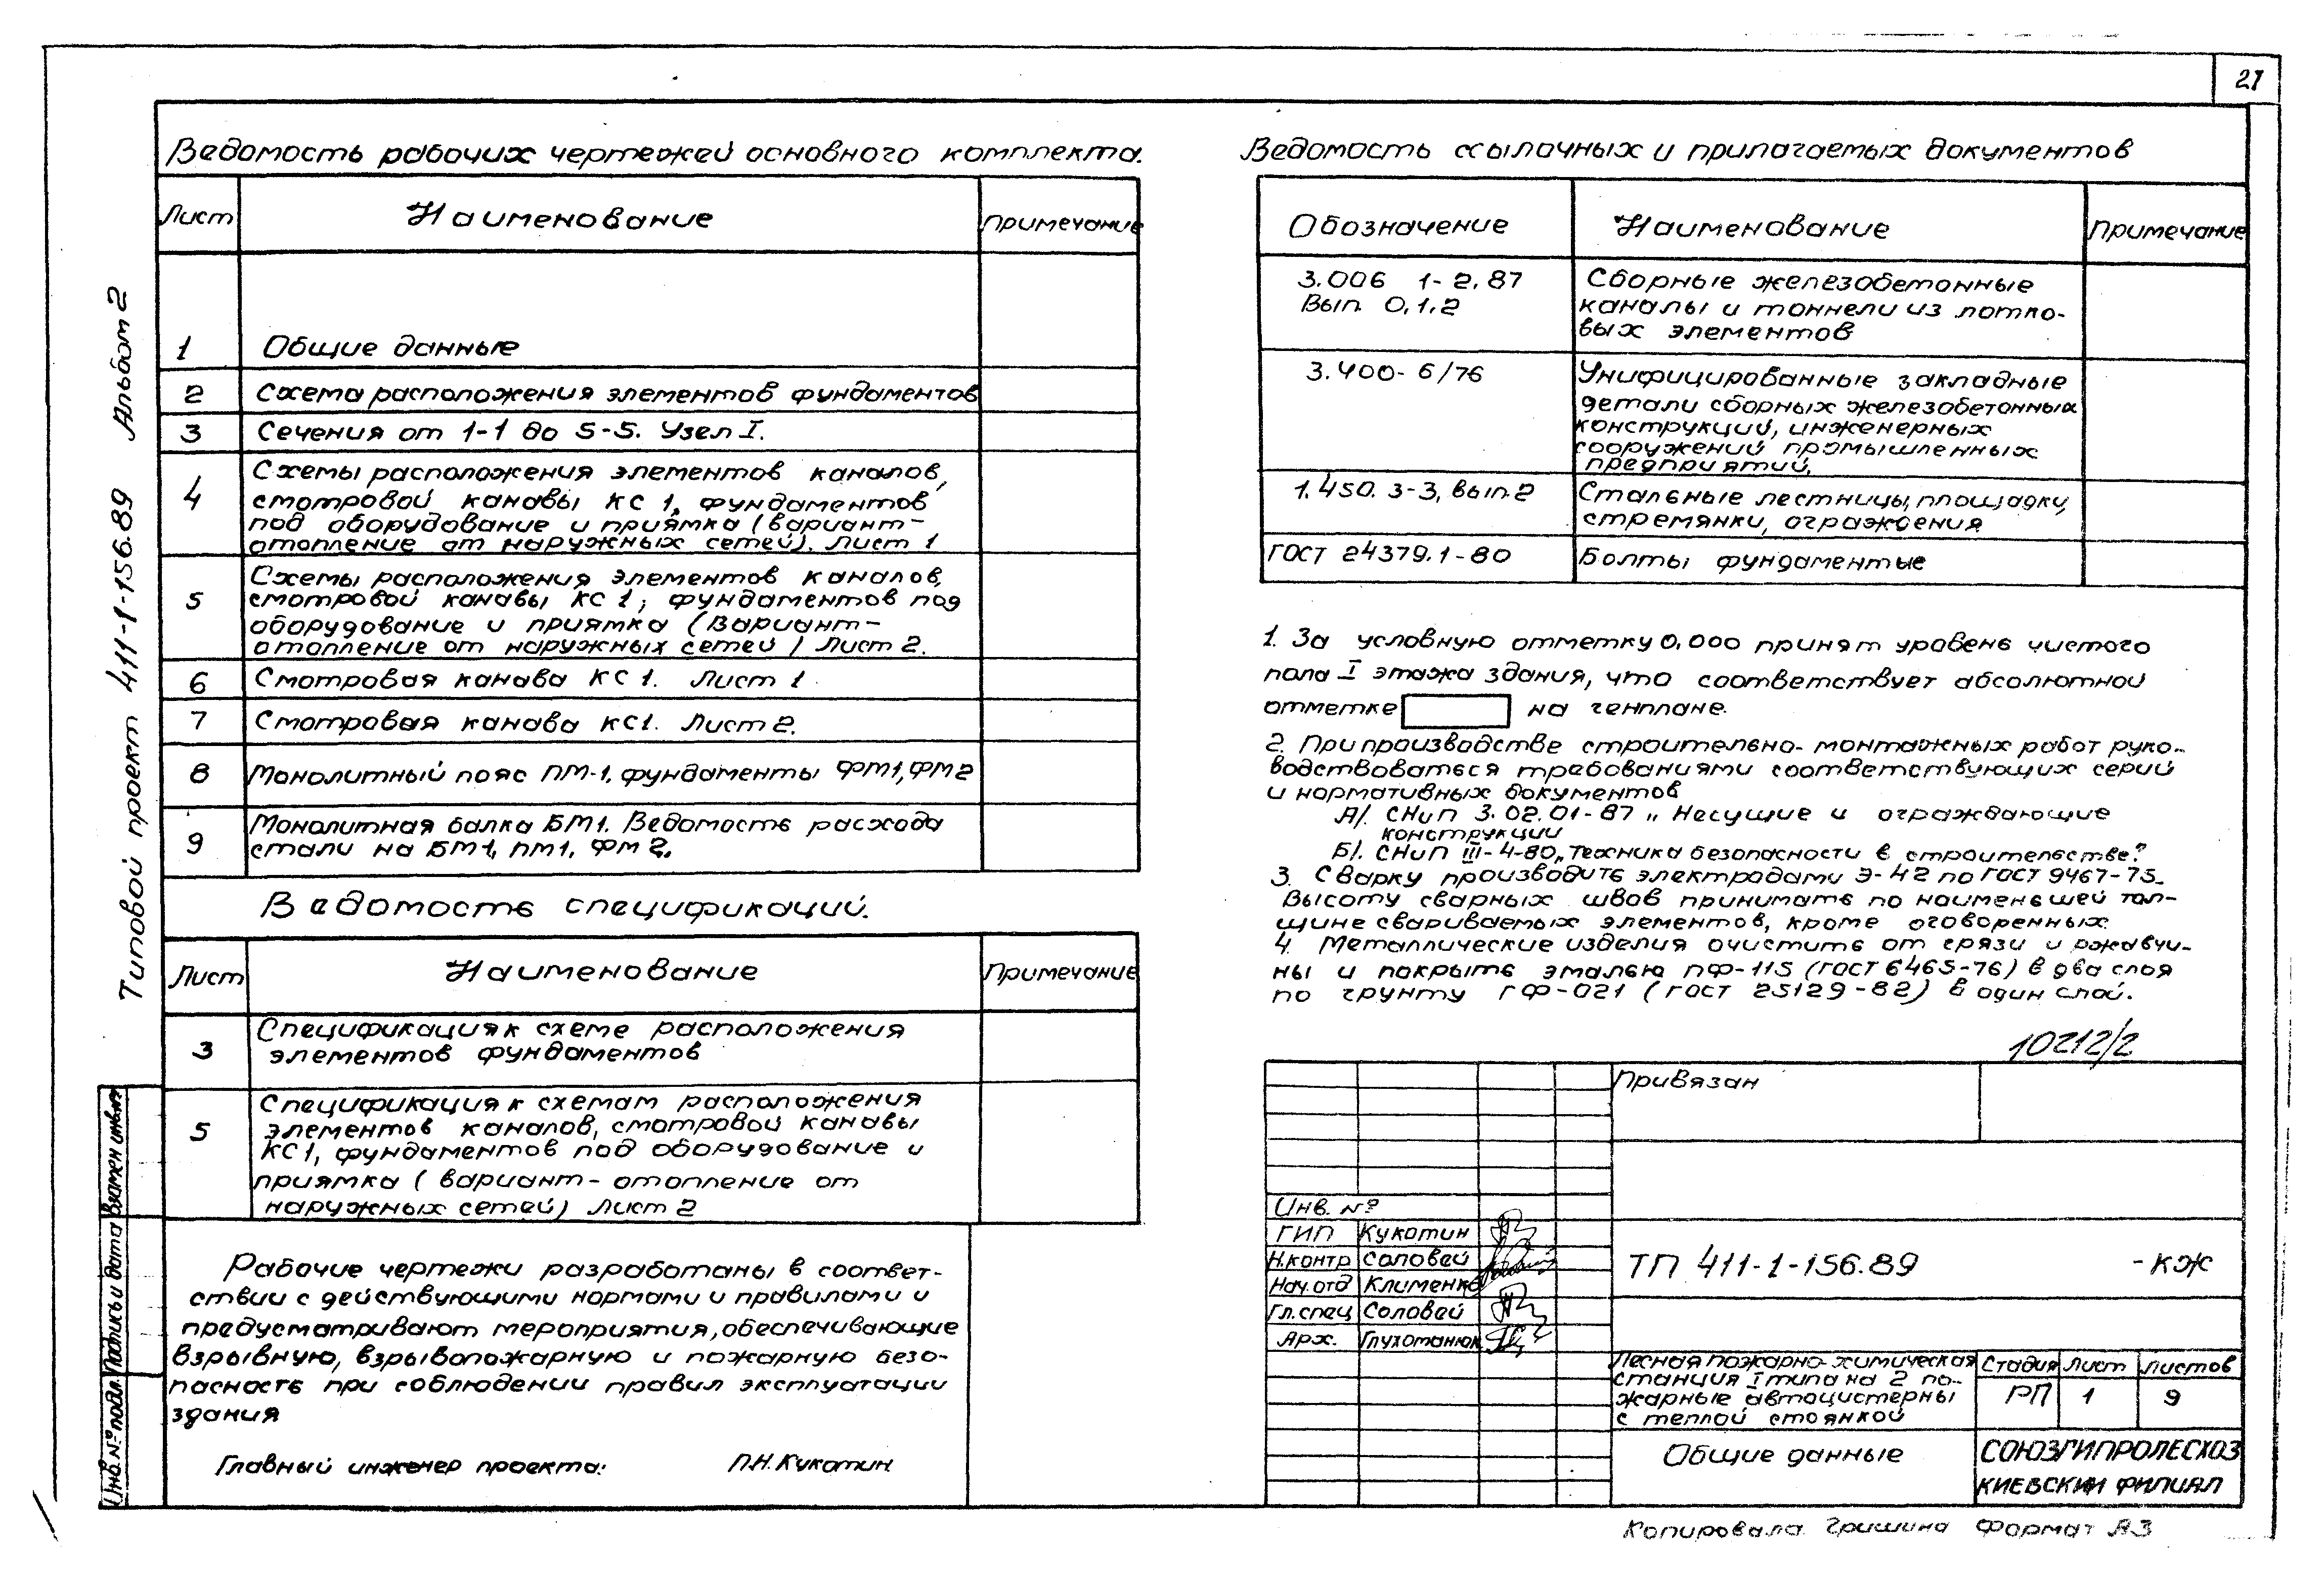 21
Типовой проект 411-1-156.89 Альбом 2
Ведомость рабочих чертежей основного комплекта.
Лист Наименование Примечание
1 Общие данные
2 Схема расположения элементов фундаментов
3 Сечения от 1-1 до 5-5. Узел I.
4 Схемы расположения элементов каналов,
смотровой канавы КС 1, фундаментов
под оборудование и приямка (вариант-
отопление от наружных сетей). Лист 1
5 Схемы расположения элементов каналов,
смотровой канавы КС 1, фундаментов под
оборудование и приямка (Вариант-
отопление от наружных сетей) Лист 2.
6 Смотровая канава КС 1. Лист 1
7 Смотровая канава КС1. Лист 2.
8 Монолитный пояс ПМ-1, фундаменты ФМ1, ФМ2
9 Монолитная балка БМ1. Ведомость расхода
стали на БМ1, ПМ1, ФМ 2.
Ведомость спецификаций.
Лист Наименование Примечание
3 Спецификация к схеме расположения
элементов фундаментов
5 Спецификация к схемам расположения
элементов каналов, смотровой канавы
КС1, фундаментов под оборудование и
приямка ( вариант- отопление от
наружных сетей) Лист 2
Рабочие чертежи разработаны в соответ-
ствии с действующими нормами и правилами и
предусматривают мероприятия, обеспечивающие
взрывную, взрывопожарную и пожарную безо-
пасность при соблюдении правил эксплуатации
здания
Главный инженер проекта: П.Н. Кукотин
Ведомость ссылочных и прилагаемых документов
Обозначение Наименование Примечание
3.006 1- 2.87 Сборные железобетонные
Вып. 0,1,2 каналы и тоннели из лотко-
вых элементов
3.400- 6/76 Унифицированные закладные
детали сборных железобетонных
конструкций, инженерных
сооружений промышленных
предприятий.
1.450. 3-3, вып.2 Стальные лестницы, площадки,
стремянки, ограждения
ГОСТ 24379.1-80 Болты фундаментые
1. За условную отметку 0,000 принят уровень чистого
пола I этажа здания, что соответствует абсолютной
отметке на генплане.
2. При производстве строительно- монтажных работ руко-
водствоваться требованиями соответствующих серий
и нормативных документов
А/. СНиП 3.02.01-87 „Несущие и ограждающие
конструкции
Б/. СНиП III-4-80 „Техника безопасности в строительстве."
3. Сварку производить электродами Э-42 по ГОСТ 9467-75.
Высоту сварных швов принимать по наименьшей тол-
щине свариваемых элементов, кроме оговоренных.
4. Металлические изделия очистить от грязи и ржавчи-
ны и покрыть эмалью ПФ-115 (ГОСТ 6465-76) в два слоя
по грунту ГФ-021 (ГОСТ 25129-82) в один слой.
10212/2
Привязан
Инв. №
ГИП Кукотин
Н.контр Соловей
Нач.отд Клименко
Гл.спец Соловей
Арх. Глухоманюк
ТП 411-1-156.89 -КЖ
Лесная пожарно-химическая
станция I типа на 2 по-
жарные автоцистерны
с теплой стоянкой
Стадия Лист Листов
РП 1 9
Общие данные
СОЮЗГИПРОЛЕСХОЗ
КИЕВСКИЙ ФИЛИАЛ
Копировала Гришина Формат А3
Инв. № подл. Подпись и дата Взамен инв. №